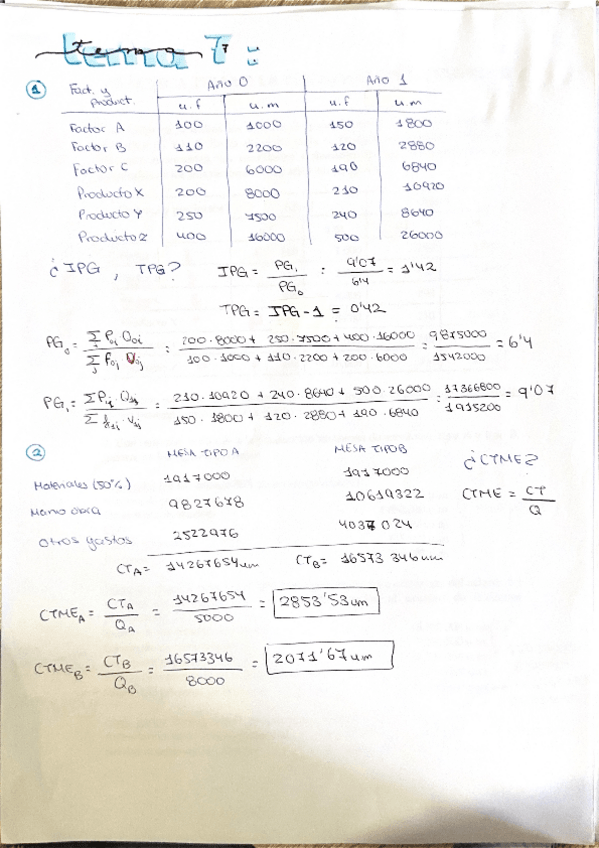 tema 7:
1 Fact. y Product. Año 0 Año 1
u.f u.m u.f u.m
Factor A 100 1000 150 1800
Factor B 110 2200 120 2880
Factor C 200 6000 190 6840
Producto X 200 8000 210 10920
Producto Y 250 7500 240 8640
Producto Z 400 16000 500 26000
¿IPG, TPG? IPG = PG₁/PG₀ : 9'07/6'4 = 1'42
TPG = IPG - 1 = 0'42
PG₀ = : 200·8000 + 250·7500 + 400·16000 / 100·1000 + 110·2200 + 200·6000 : 9875000/1542000 = 6'4
PG₁ = : 210·10920 + 240·8640 + 500·26000 / 150·1800 + 120·2880 + 190·6840 : 17366800/1915200 = 9'07
2 MESA TIPO A MESA TIPO B ¿CTME?
Materiales (50%) 1917000 1917000
Mano obra 9827678 10619322 CTME = CT/Q
Otros gastos 2522976 4037024
CTA = 14267654 um CTB = 16573346 um
CTMEA = CTA/QA = 14267654/5000 = 2853'53 um
CTMEB = CTB/QB = 16573346/8000 = 2071'67 um